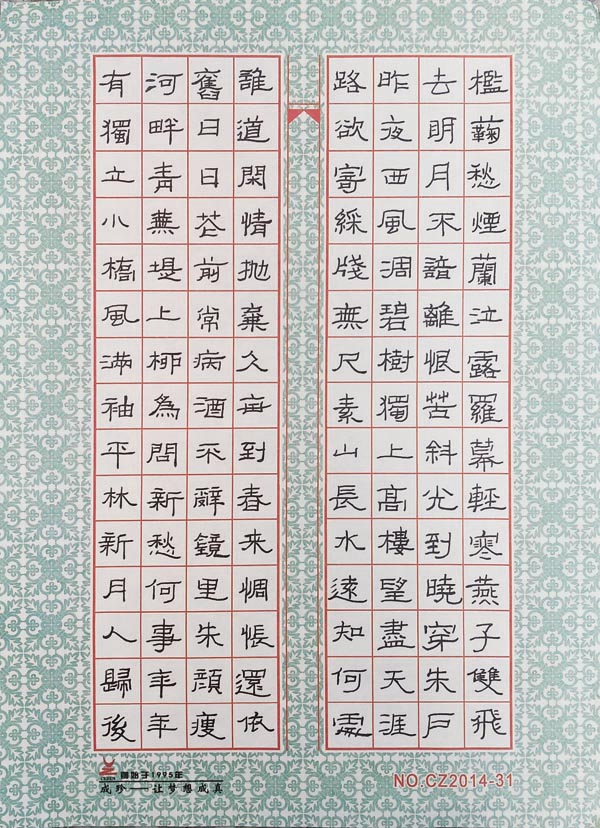 檻蘜愁煙蘭泣露羅幕輕寒燕子雙飛
去明月不諳離恨苦斜光到曉穿朱戶
昨夜西風凋碧樹獨上高樓望盡天涯
路欲寄綵牋無尺素山長水遠知何處
誰道閑情拋棄久每到春來惆悵還依
舊日日花前常病酒不辭鏡里朱顏瘦
河畔青蕪堤上柳為問新愁何事年年
有獨立小橋風滿袖平林新月人歸後
創始于1995年
成珍——让梦想成真
NO.CZ2014-31